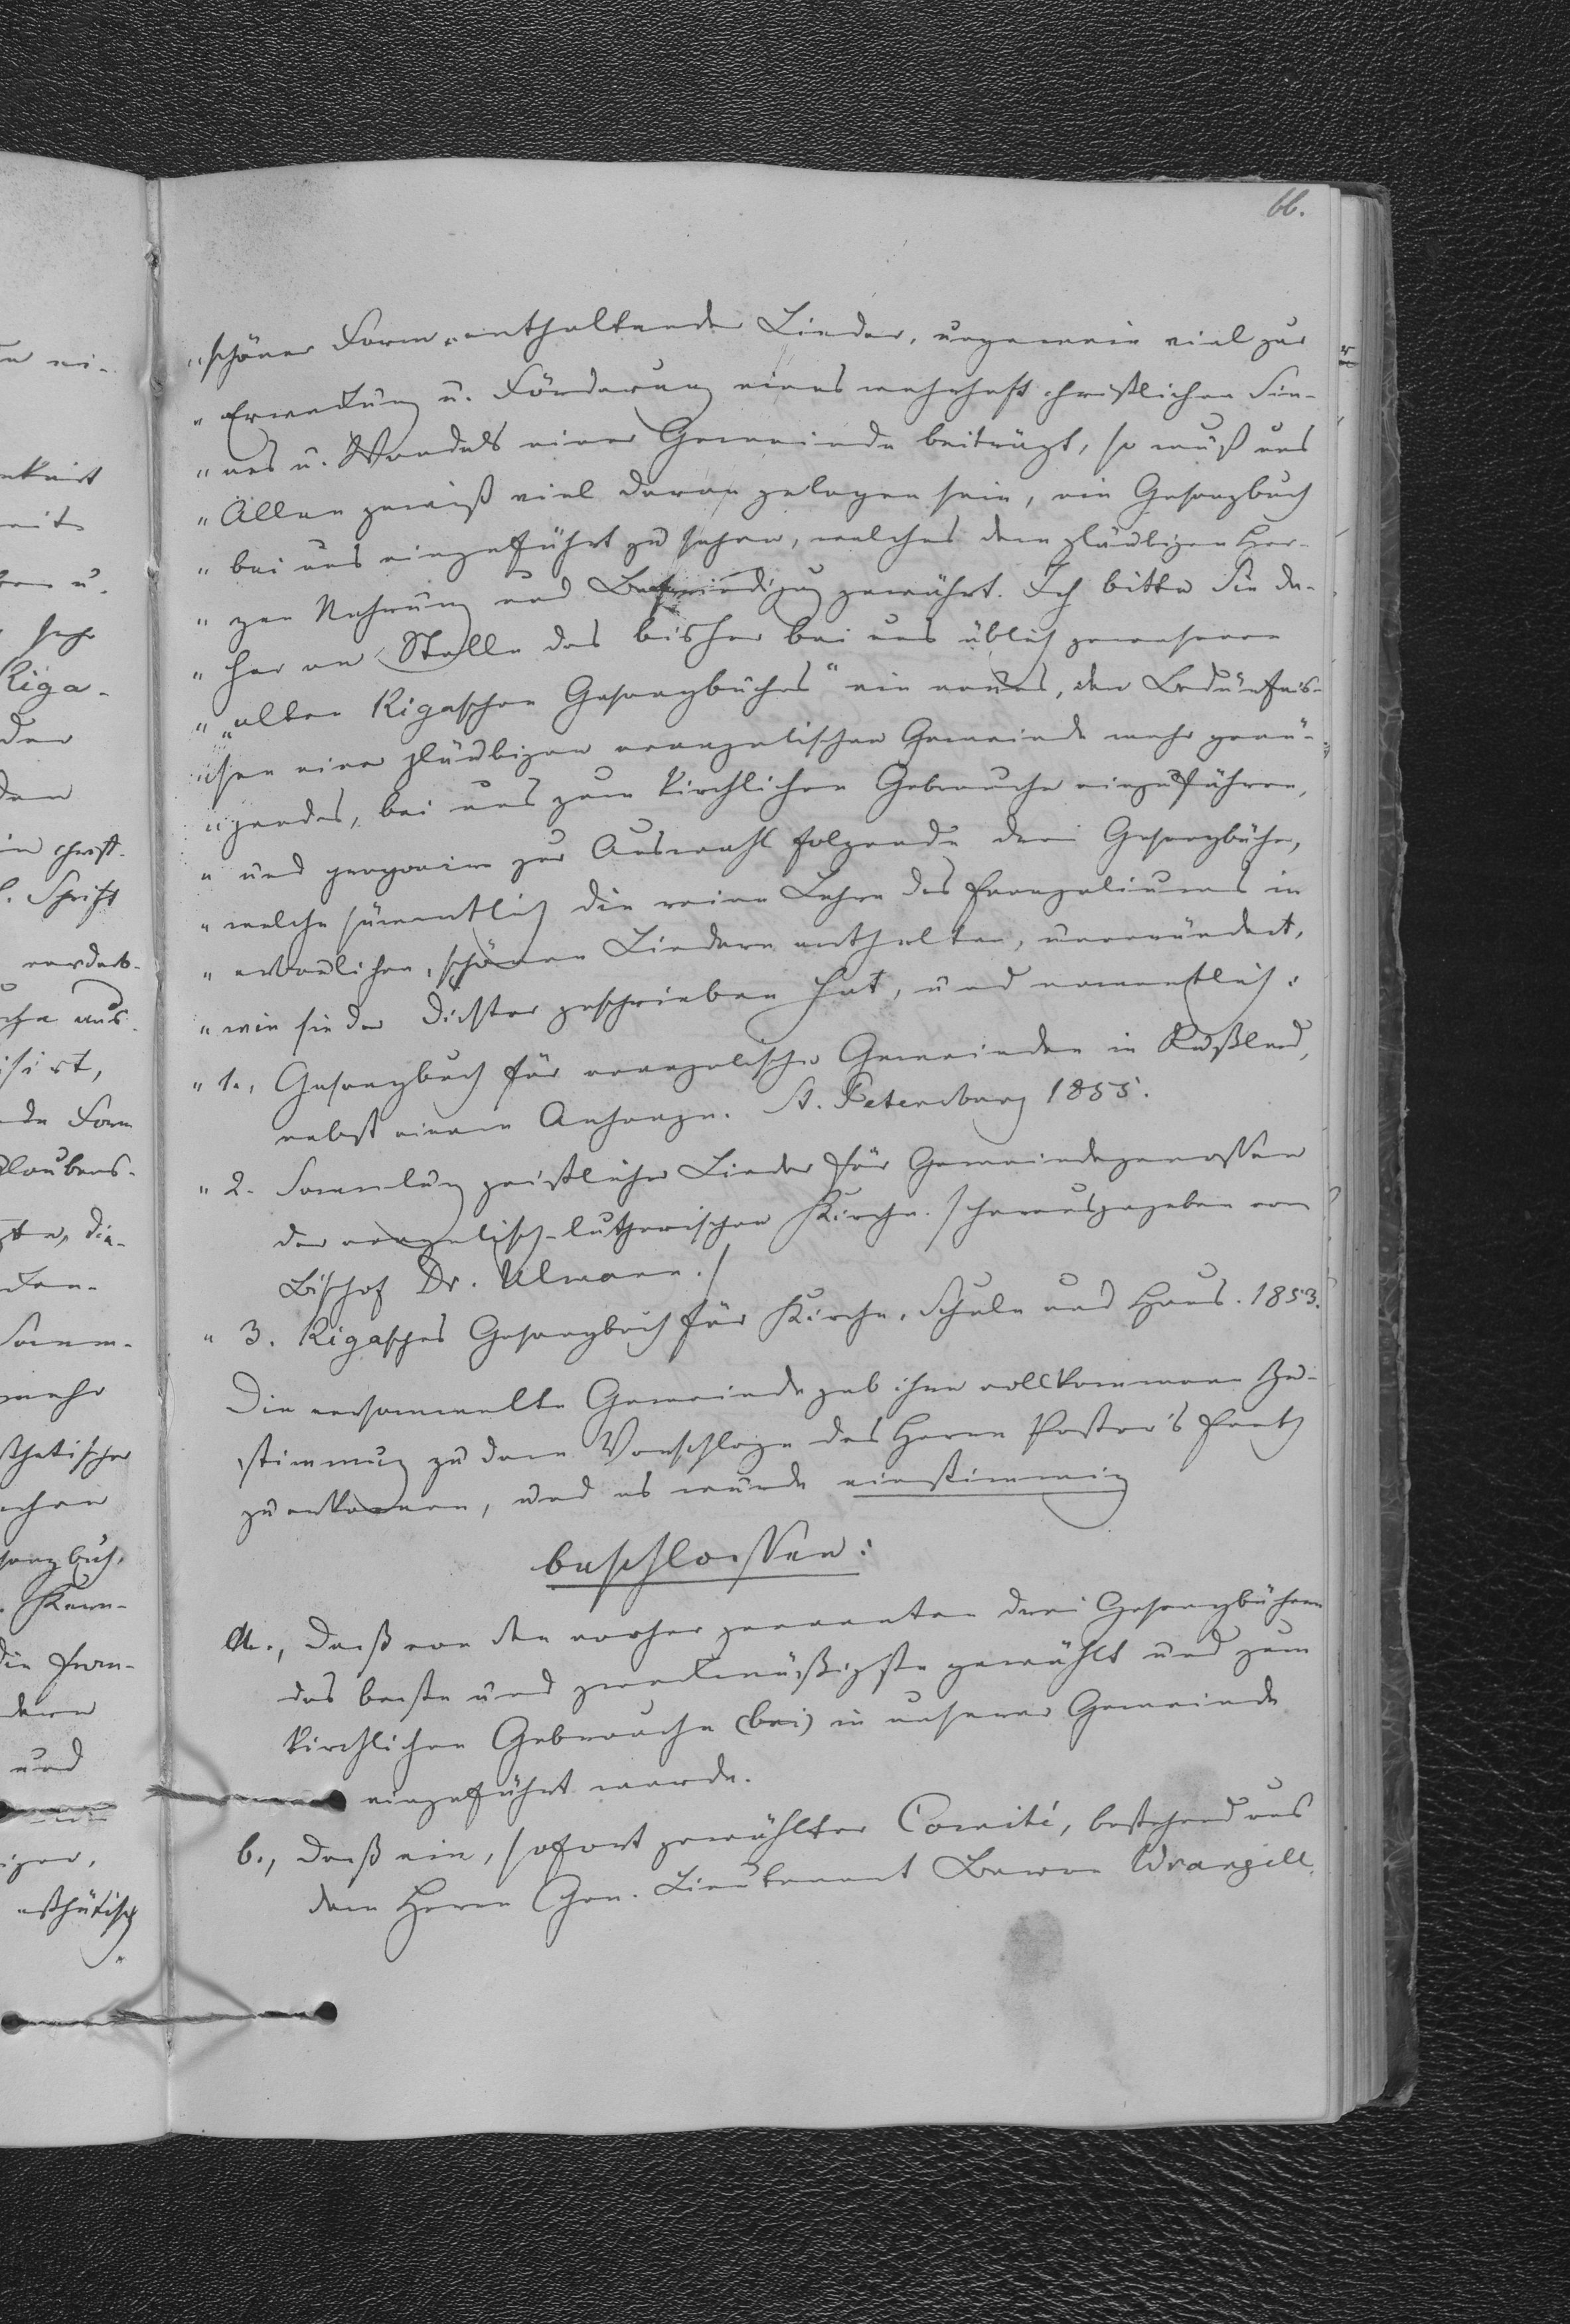 66.
"schöner Form enthaltende Lieder, ungemein viel zur
" Erweckung u. Förderung eines wahrhaft christlichen Sin-
" nes u. Wandels einer Gemeinde beiträgt, so muß uns
" Allen gewiß viel daran gelegen sein, ein Gesangbuch
" bei uns eingeführt zu sehen, welches dem gläubigen Her-
" zen Nahrung und Befriedigung gewährt. Ich bitte Sie da-
" her an Stelle des bisher bei uns üblich gewesenen
" „alten Rigaschen Gesangbuches" ein neues, den Bedürfnis-
" sen einer gläubigen evangelischen Gemeinde mehr genü-
" gendes, bei uns zum kirchlichen Gebrauche einzuführen,
" und proponire zur Auswahl folgende drei Gesangbücher,
" welche sämmtlich die reine Lehre des Evangeliums in
" erbaulichen, schönen Liedern enthalten, unverändert,
" wie sie der Dichter geschrieben hat, und namentlich:
" 1., Gesangbuch für evangelische Gemeinden in Rußland,
nebst einem Anhange. St. Petersburg 1855.
" 2. Sammlung geistlicher Lieder für Gemeindegenossen
der evangelisch-lutherischen Kirche. /herausgegeben vom
Bischof Dr. Ulmann./
" 3. Rigasches Gesangbuch für Kirche, Schule und Haus. 1853.
Die versammelte Gemeinde gab ihre vollkommene Zu-
stimmung zu dem Vorschlage des Herrn Pastor's
zu erkennen, und es wurde einstimmig
beschlossen:
a., daß von den vorher genannten drei Gesangbüchern
das beste und zweckmäßigste gewählt und zum
kirchlichen Gebrauche (bei) in unserer Gemeinde
eingeführt werde.
b., daß ein, sofort gewählter Comité, bestehend aus
dem Herrn Gen. Lieutenant Baron Wrangell,